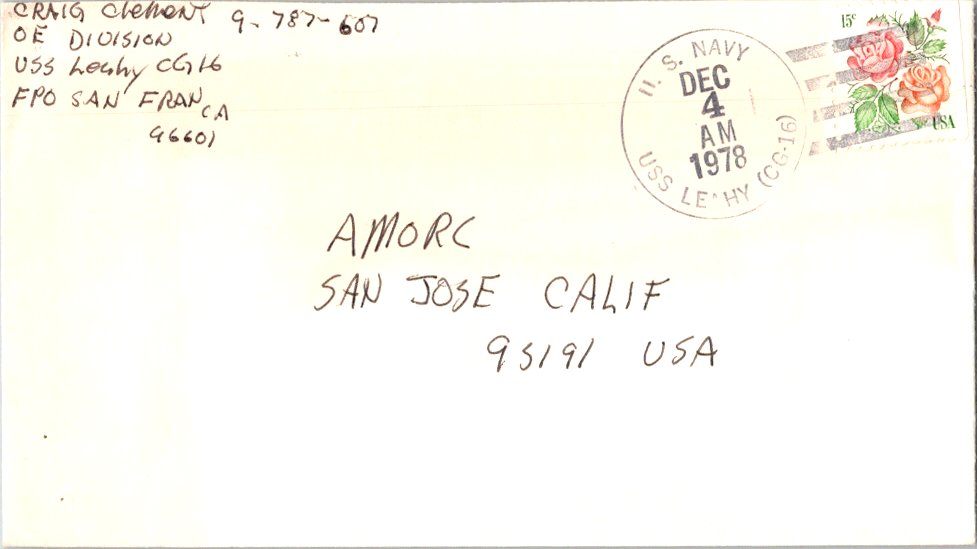 CRAIG Clement 9-787-607
OE DIVISION
USS Leahy CG16
FPO SAN FRAN CA
96601
U. S. NAVY
DEC
4
AM
1978
USS LEAHY (CG-16)
15c
USA
AMORC
SAN JOSE CALIF
95191 USA